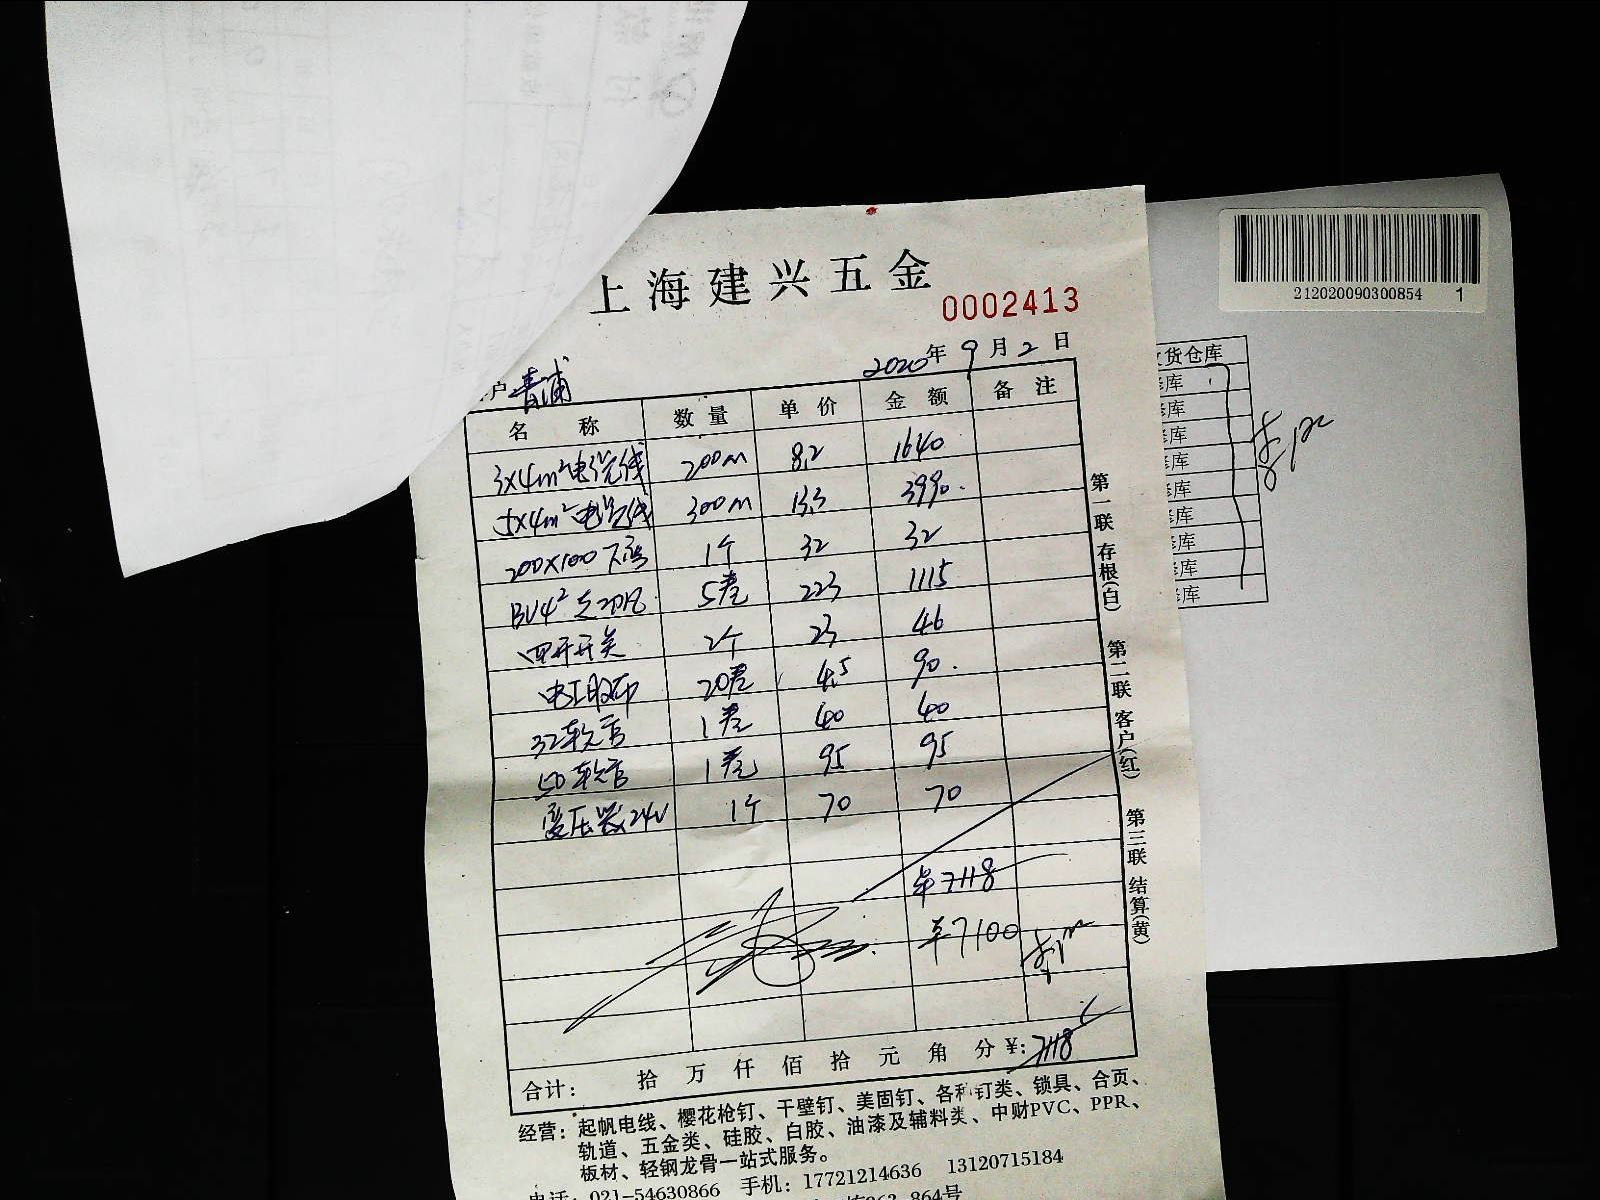 上海建兴五金
0002413
2020年9月2日
户 青浦
名称 数量 单价 金额 备注
3×4m²电缆线 200m 8.2 1640
5×4m²电缆线 300m 13.3 3990.
200×100 1个 32 32
BV4² 5卷 223 1115
四开开关 2个 23 46
电工胶布 20卷 4.5 90.
32软管 1卷 40 40
50软管 1卷 95 95
变压器24V 1个 70 70
7118
7100
合计: 拾 万 仟 佰 拾 元 角 分 ¥: 7118
经营: 起帆电线、樱花枪钉、干壁钉、美固钉、各种钉类、锁具、合页、
轨道、五金类、硅胶、白胶、油漆及辅料类、中财PVC、PPR、
板材、轻钢龙骨一站式服务。
电话: 021-54630866 手机: 17721214636 13120715184
864号
第一联 存根(白) 第二联 客户(红) 第三联 结算(黄)
212020090300854 1
货仓库
库
库
库
库
库
库
库
库
库